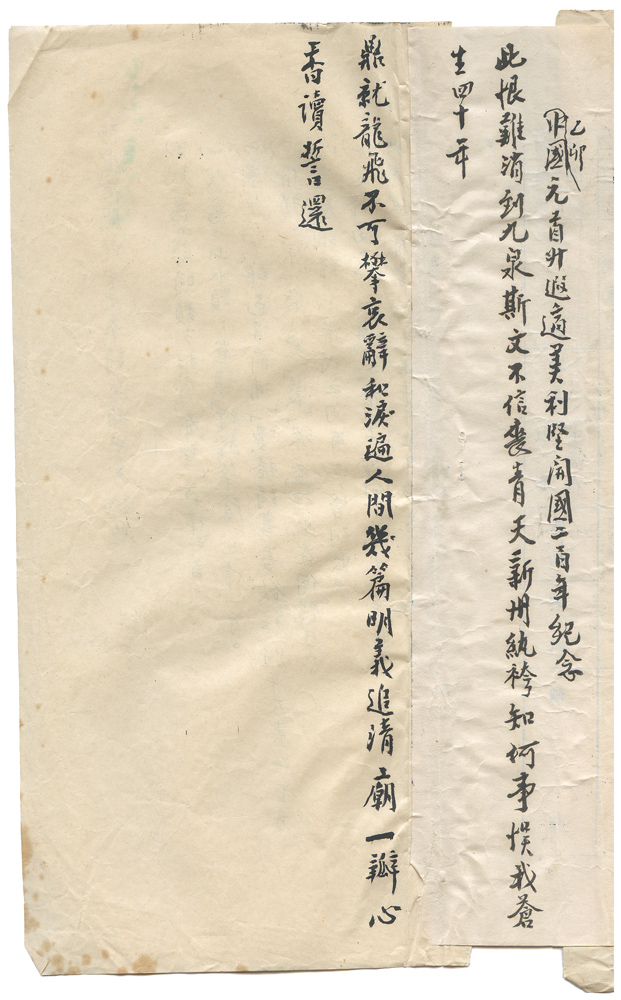 乙卯
國元首升遐適美利堅開國二百年紀念
此恨難消到九泉斯文不信喪青天新州紈袴知何事悞我蒼
生四十年
鼎就龍飛不可攀哀辭和淚遍人間幾篇明義追清廟一瓣心
香讀誓還